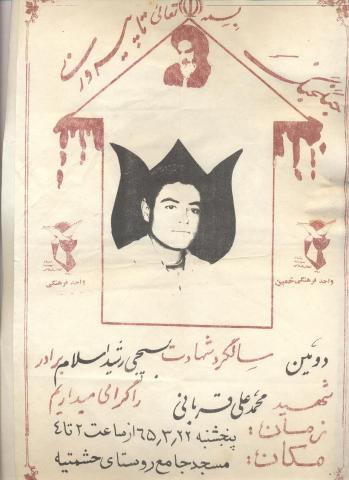 بسمه تعالی
جنگ جنگ تا پیروزی
واحد فرهنگی
واحد فرهنگی خمین
دومین سالگرد شهادت بسیجی رشید اسلام برادر
شهید محمد علی قربانی را گرامی میداریم
زمان: پنجشنبه ۶۵٫۳٫۲۲ از ساعت ۲ تا ۴
مکان: مسجد جامع روستای حشمتیه